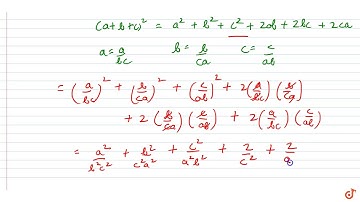 (a+b+c)² = a² + b² + c² + 2ab + 2bc + 2ca
a = a/bc b = b/ca c = c/ab
= (a/bc)² + (b/ca)² + (c/ab)² + 2(a/bc)(b/ca)
+ 2(b/ca)(c/ab) + 2(a/bc)(c/ab)
= a²/b²c² + b²/c²a² + c²/a²b² + 2/c² + 2/a